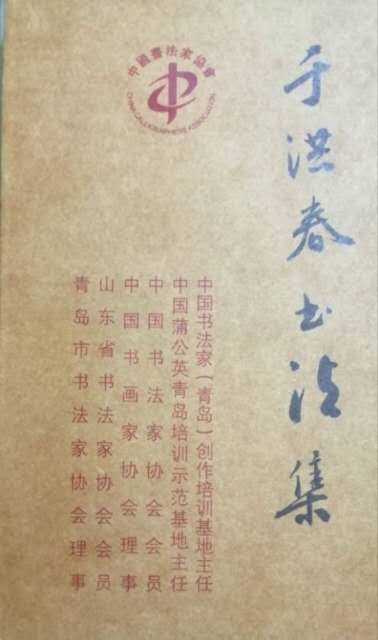 于洪春书法集
中国书法家(青岛)创作培训基地主任
中国蒲公英青岛培训示范基地主任
中国书法家协会会员
中国书画家协会理事
山东省书法家协会会员
青岛市书法家协会理事
中國書法家協會
CHINA CALLIGRAPHERS ASSOCIATION